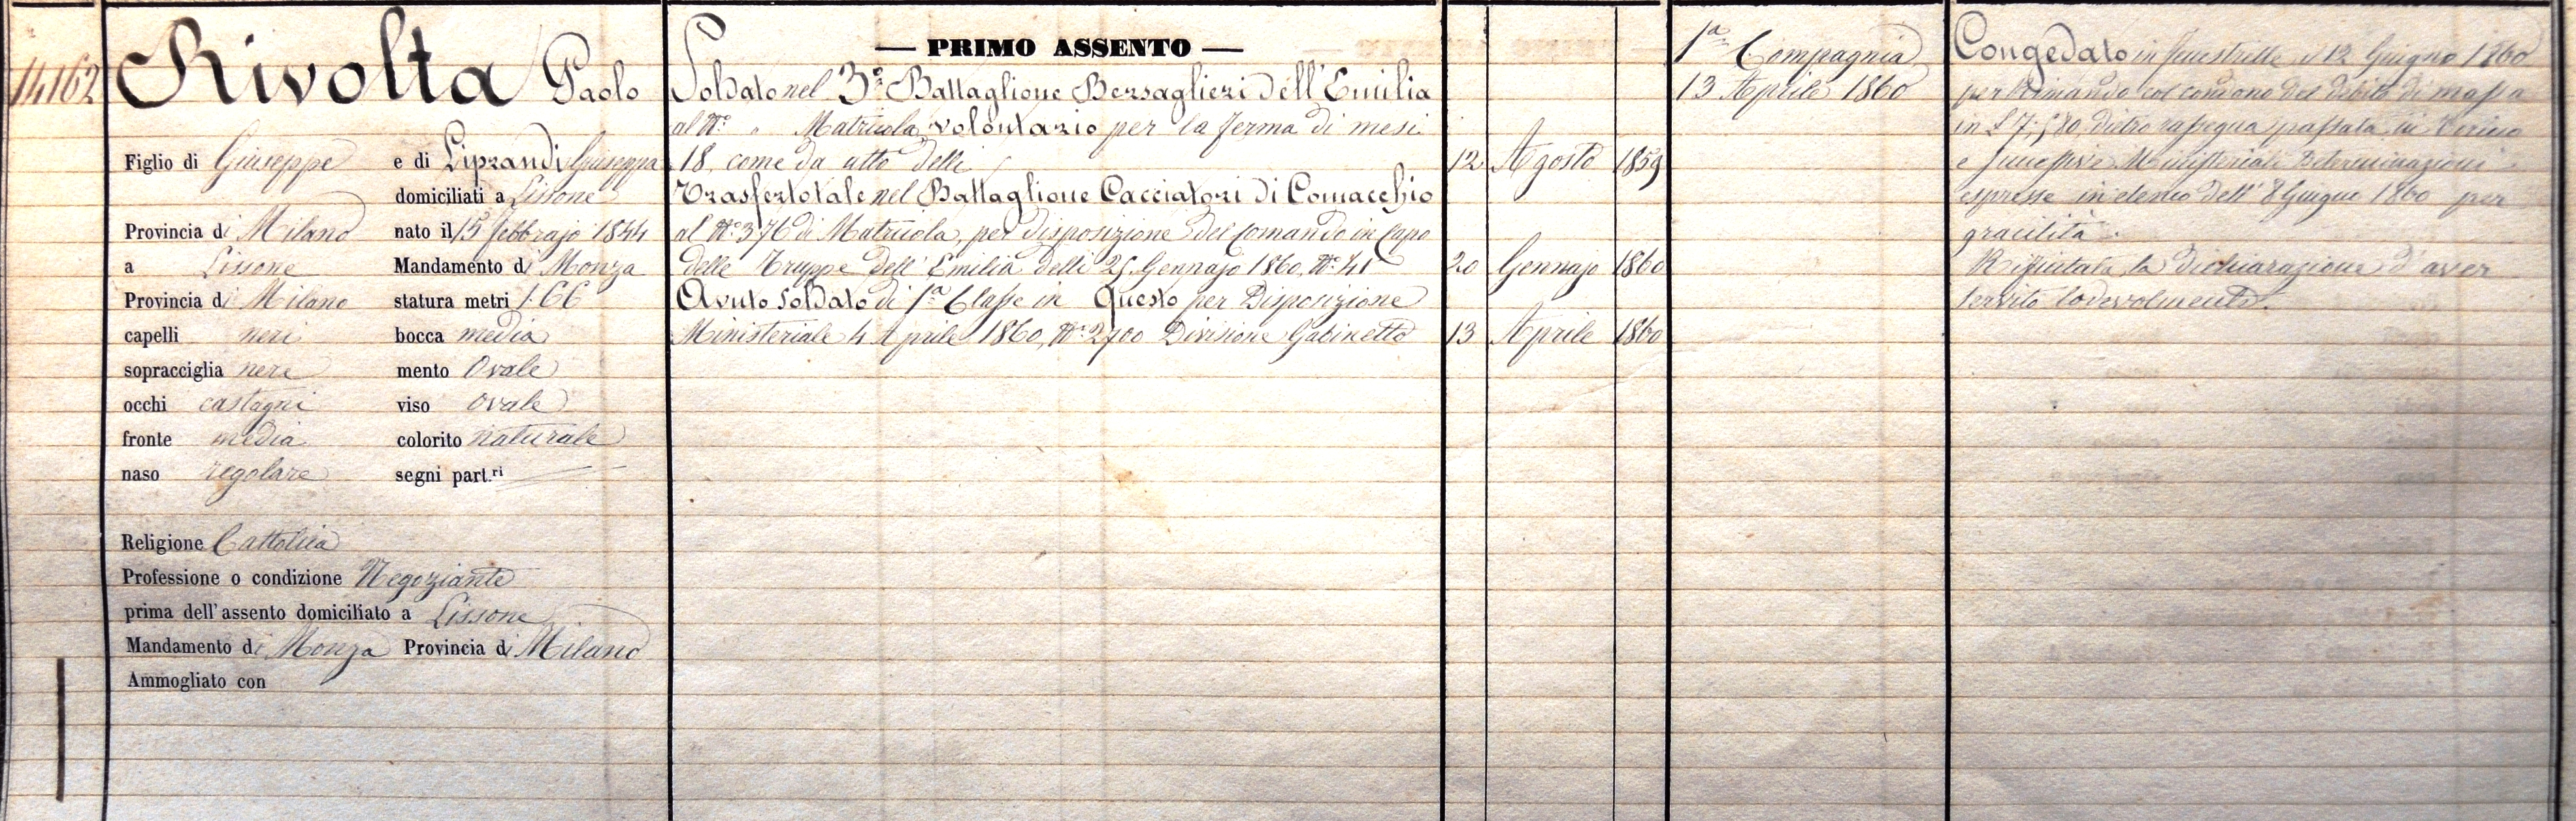 14162
Rivolta Paolo
Figlio di Giuseppe e di Liprandi Giuseppa
domiciliati a Lissone
Provincia di Milano nato il 15 febbrajo 1844
a Lissone Mandamento di Monza
Provincia di Milano statura metri 1.66
capelli neri bocca media
sopracciglia nere mento Ovale
occhi castagni viso ovale
fronte media colorito naturale
naso regolare segni part.ri
Religione Cattolica
Professione o condizione Negoziante
prima dell'assento domiciliato a Lissone
Mandamento di Monza Provincia di Milano
Ammogliato con
— PRIMO ASSENTO —
Soldato nel 3° Battaglione Bersaglieri dell'Emilia
al N° " Matricola, volontario per la ferma di mesi
18, come da atto delli 12 Agosto 1859
Trasfertotale nel Battaglione Cacciatori di Comacchio
al N° 376 di Matricola, per disposizione del Comando in Capo
delle Truppe dell'Emilia delli 25 Gennajo 1860, N° 41 20 Gennajo 1860
Avuto Soldato di 1a Classe in Questo per Disposizione
Ministeriale 4 Aprile 1860, N° 2700 Divisione Gabinetto 13 Aprile 1860
1a Compagnia
13 Aprile 1860
Congedato in fenestrelle il 12 Giugno 1860
per Rimando col condono del debito di massa
in £ 7. dietro rassegna passata in
e successive Ministeriali Determinazioni
espresse in elenco dell' 8 Giugno 1860 per
gracilità.
Rifiutata la dichiarazione d'aver
servito lodevolmente.